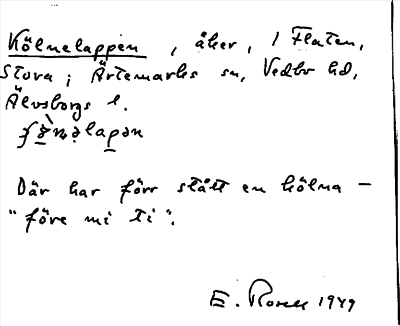 Kölnelappen, åker, i Flaten,
Stora; Ärtemarks sn, Vedbo hd,
Älvsborgs l.
Där har förr stått en kölna –
"före mi ti".
E. Rosell 1949